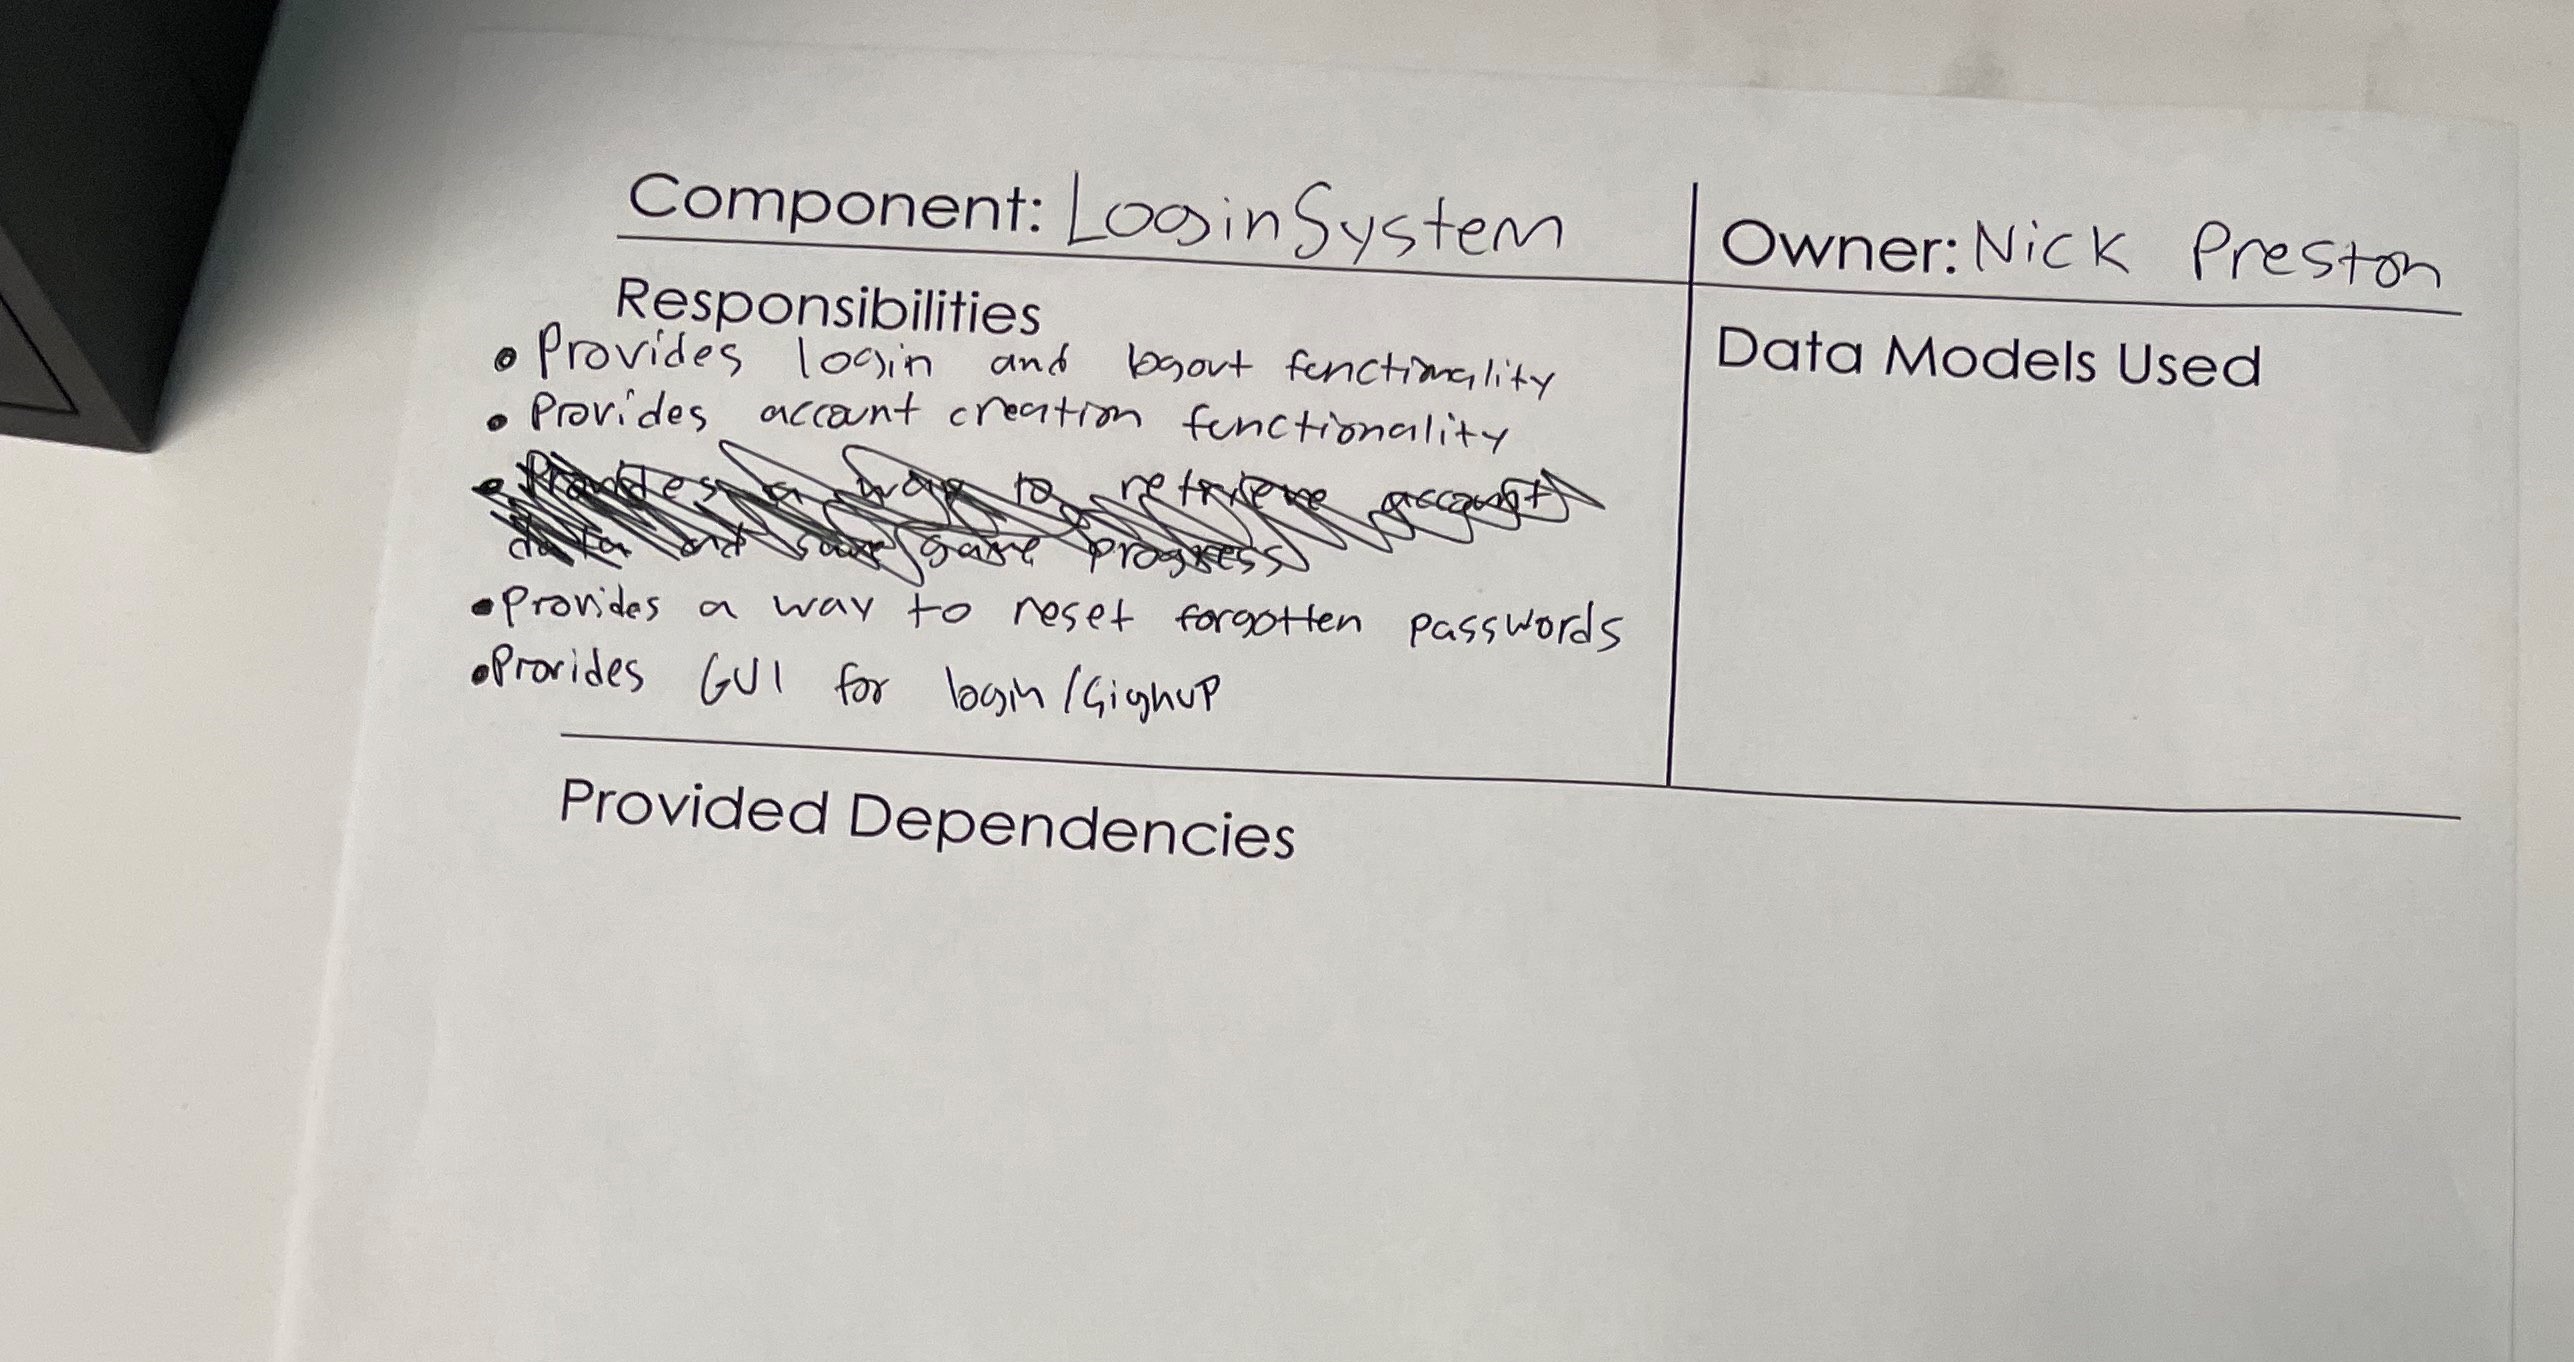 Component: LoginSystem
Owner: Nick Preston
Responsibilities
• Provides login and logout functionality
• Provides account creation functionality
• Provides a way to retrieve account
data and save game progress
• Provides a way to reset forgotten passwords
• Provides GUI for login/Signup
Data Models Used
Provided Dependencies